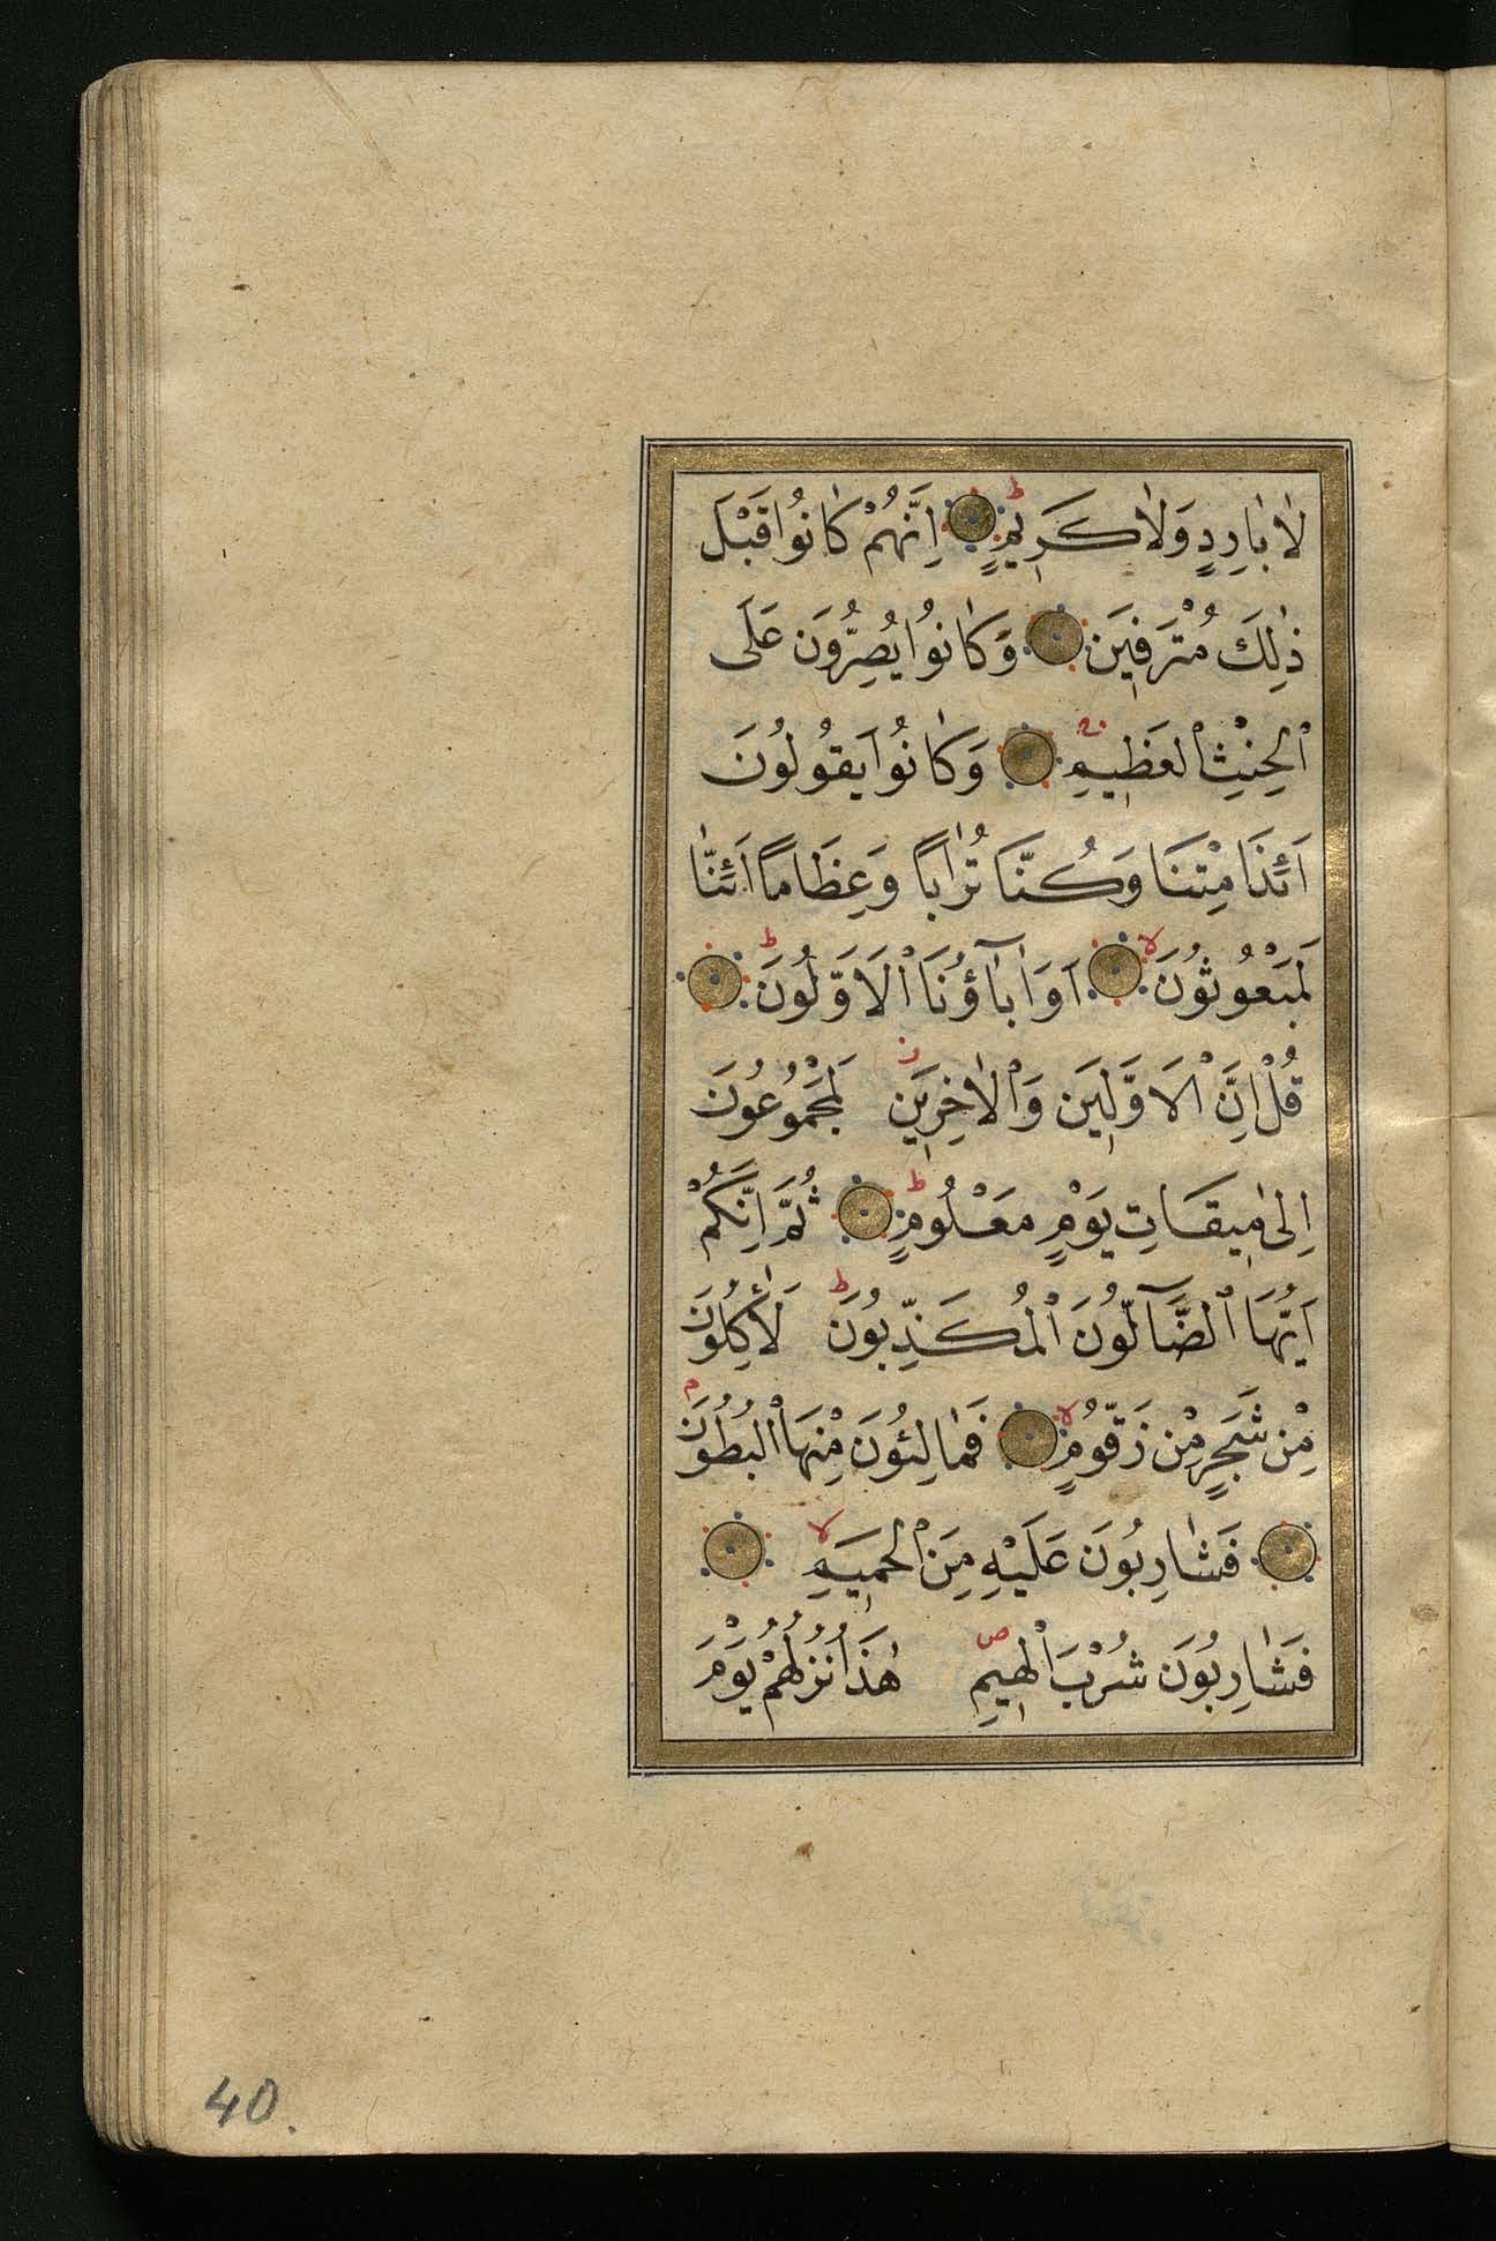 لَا بَارِدٍ وَلَا كَرِيمٍ ط اِنَّهُمْ كَانُوا قَبْلَ
ذٰلِكَ مُتْرَفِينَ وَكَانُوا يُصِرُّونَ عَلَى
الْحِنْثِ الْعَظِيمِ وَكَانُوا يَقُولُونَ
اَئِذَا مِتْنَا وَكُنَّا تُرَابًا وَعِظَامًا اَئِنَّا
لَمَبْعُوثُونَ لا اَوَاٰبَآؤُنَا الْاَوَّلُونَ ط
قُلْ اِنَّ الْاَوَّلِينَ وَالْاٰخِرِينَ لَمَجْمُوعُونَ
اِلٰى مِيقَاتِ يَوْمٍ مَعْلُومٍ ط ثُمَّ اِنَّكُمْ
اَيُّهَا الضَّآلُّونَ الْمُكَذِّبُونَ ط لَاٰكِلُونَ
مِنْ شَجَرٍ مِنْ زَقُّومٍ لا فَمَالِئُونَ مِنْهَا الْبُطُونَ م
فَشَارِبُونَ عَلَيْهِ مِنَ الْحَمِيمِ لا
فَشَارِبُونَ شُرْبَ الْهِيمِ ص هٰذَا نُزُلُهُمْ يَوْمَ
40.